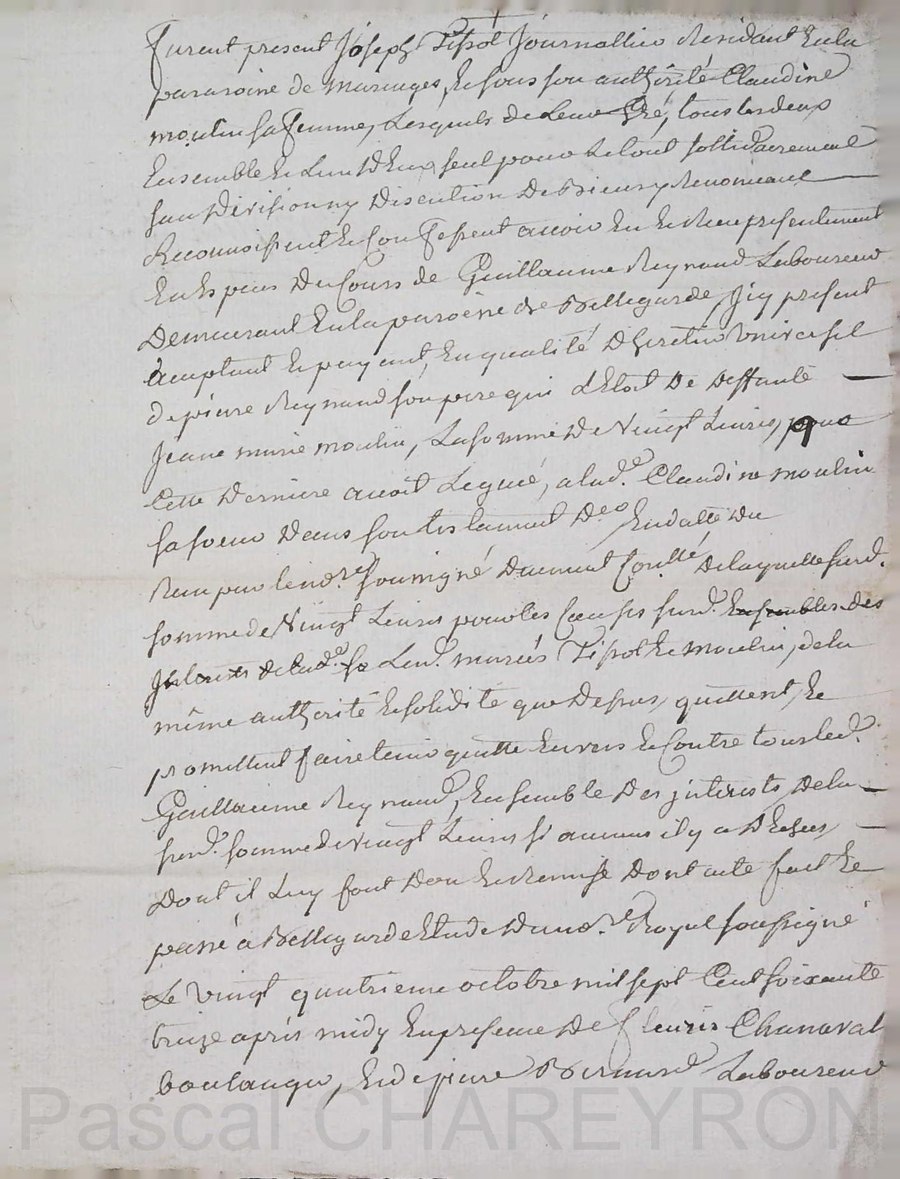 furent present Joseph Tissot Journallier Residant Enla
paroisse de maringes, Et sous son authorité Claudine
moulin sa femme, Lesquels de Leur Gré, tous les deux
Ensemble Et Lun dEux seul pour Letout sollidairement
sans Division ny Discution De Biens y Renonceant
Reconnoissent Et Confessent avoir Eu Et Receu presentement
En Especes Du Cours de Guillaume Reynaud Laboureur
Demeurant Enla paroisse de Bellegarde, Jcy present
acceptant Et payant, En qualité D'heretier Universel
de pierre Reynaud son pere qui Etoit De Deffunte
Jeane marie moulin, La somme De Vingt Livres, que
Cette Derniere avoit Legué, a lad.e Claudine moulin
sa soeur Dans son testament En datte Du
Receu par le no.re soussigné Duement Conllé, De laquelle surd.
somme de Vingt Livres pour les Causes surd.
Lesd. mariés Tissot Et moulin, dela
même authorité Et solidité que Dessus, quittent, Et
promettent faire tenir quitte Envers Et Contre tous led.
Guillaume Reynaud, Ensemble Des jnterests Dela
surd. somme de Vingt Livres si aucuns il y a
Dont il Luy font Don Et Remise Dont acte fait Et
passé a Bellegarde Etude Du no.re Royal soussigné
Le Vingt quatrieme octobre mil sept Cent soixante
treize après midy En presence De fleuris Chanavat
boulanger, Et de pierre Bernard Laboureur
Pascal CHAREYRON